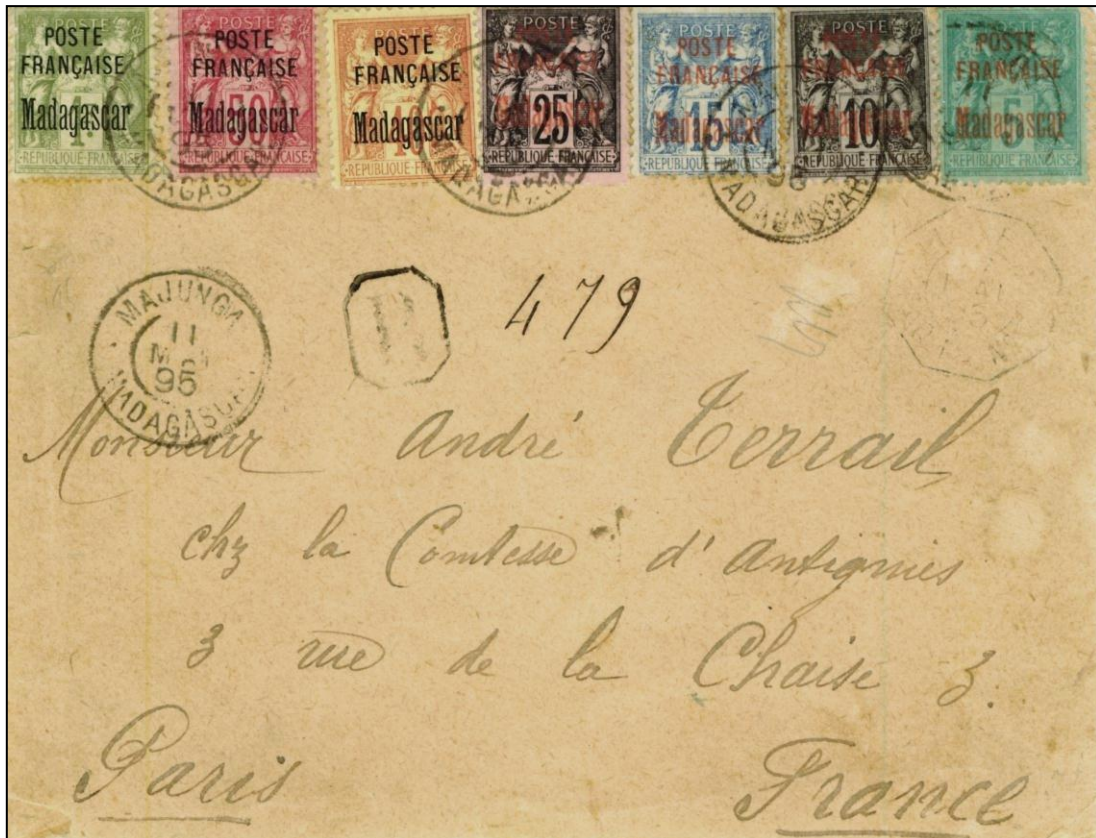 POSTE FRANÇAISE Madagascar 1F REPUBLIQUE FRANÇAISE
POSTE FRANÇAISE Madagascar 50 REPUBLIQUE FRANÇAISE
POSTE FRANÇAISE Madagascar 40 REPUBLIQUE FRANÇAISE
POSTE FRANÇAISE Madagascar 25 REPUBLIQUE FRANÇAISE
POSTE FRANÇAISE Madagascar 15 REPUBLIQUE FRANÇAISE
POSTE FRANÇAISE Madagascar 10 REPUBLIQUE FRANÇAISE
POSTE FRANÇAISE Madagascar 5 REPUBLIQUE FRANÇAISE
MADAGASCAR
MADAGASCAR
MADAGASCAR
MAJUNGA
11
95
MADAGASCAR
R
479
Monsieur André Terrail
chz la Comtesse d'Antignies
3 rue de la Chaise 3.
Paris France